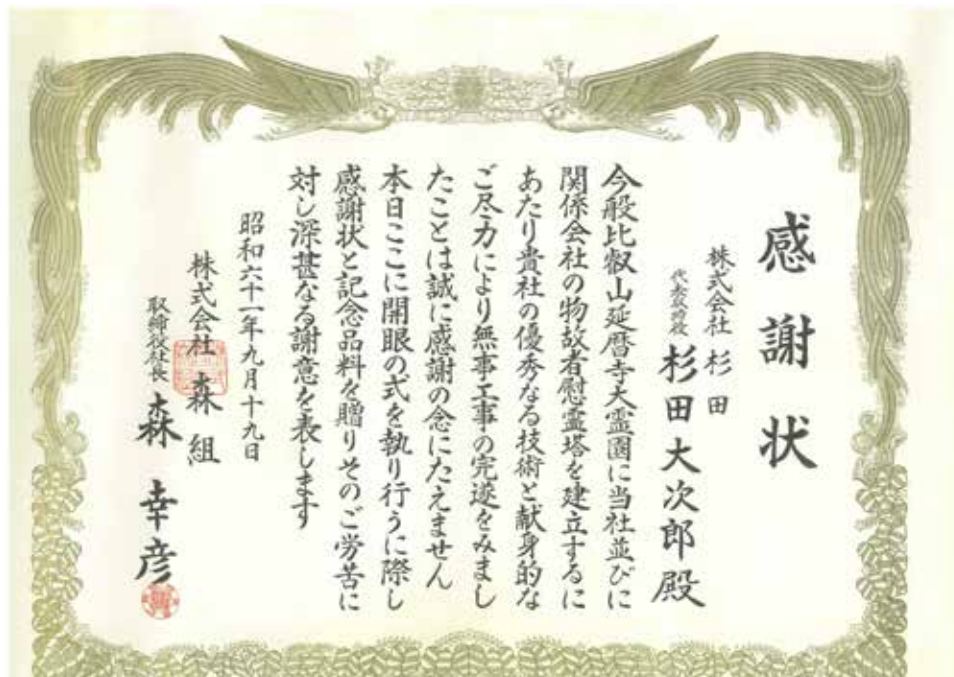 感謝状
株式会社 杉田
代表取締役 杉田大次郎殿
今般比叡山延暦寺大霊園に当社並びに
関係会社の物故者慰霊塔を建立するに
あたり貴社の優秀なる技術と献身的な
ご尽力により無事工事の完遂をみまし
たことは誠に感謝の念にたえません
本日ここに開眼の式を執り行うに際し
感謝状と記念品料を贈りそのご労苦に
対し深甚なる謝意を表します
昭和六十一年九月十九日
株式会社 森組
取締役社長 森 幸彦